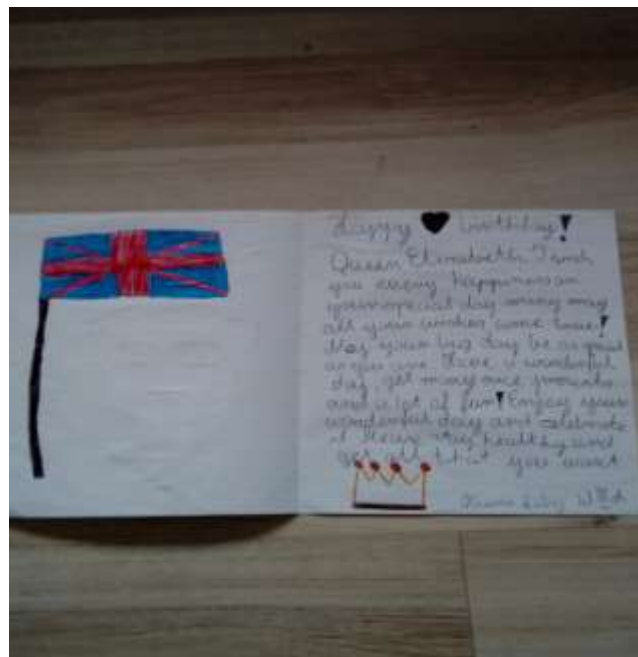 Happy birthday!
Queen Elizabeth I wish
you every happiness on
your special day
all your wishes come true!
May your big day be as great
as you are Have a wonderful
day, get many nice presents
and a lot of fun! Enjoy your
wonderful day and celebrate
it stay healthy and
get all that you want